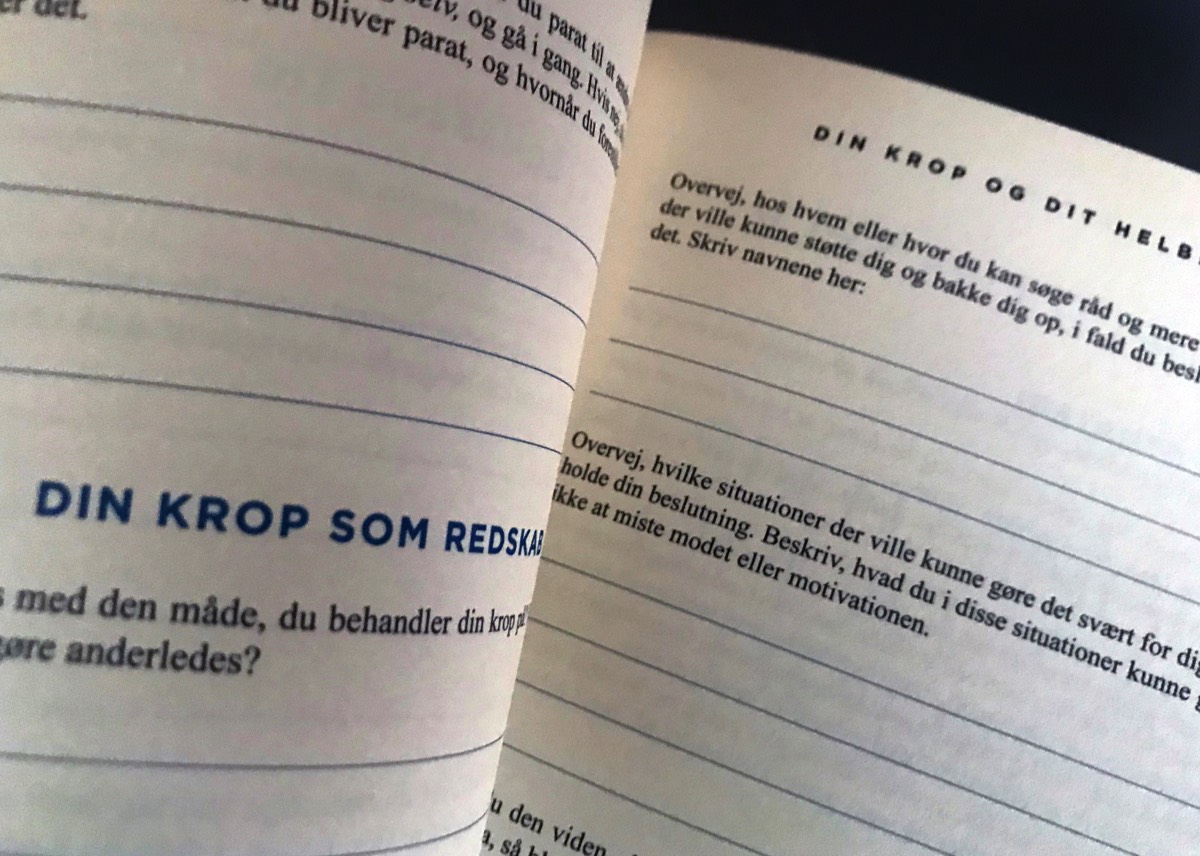 er det.
du parat til at
og gå i gang. Hvis
du bliver parat, og hvornår du
DIN KROP SOM REDSKAB
med den måde, du behandler din krop på
gøre anderledes?
DIN KROP OG DIT HELB
Overvej, hos hvem eller hvor du kan søge råd og mere
der ville kunne støtte dig og bakke dig op, i fald du besl
det. Skriv navnene her:
Overvej, hvilke situationer der ville kunne gøre det svært for dig
holde din beslutning. Beskriv, hvad du i disse situationer kunne g
ikke at miste modet eller motivationen.
u den viden
a, så